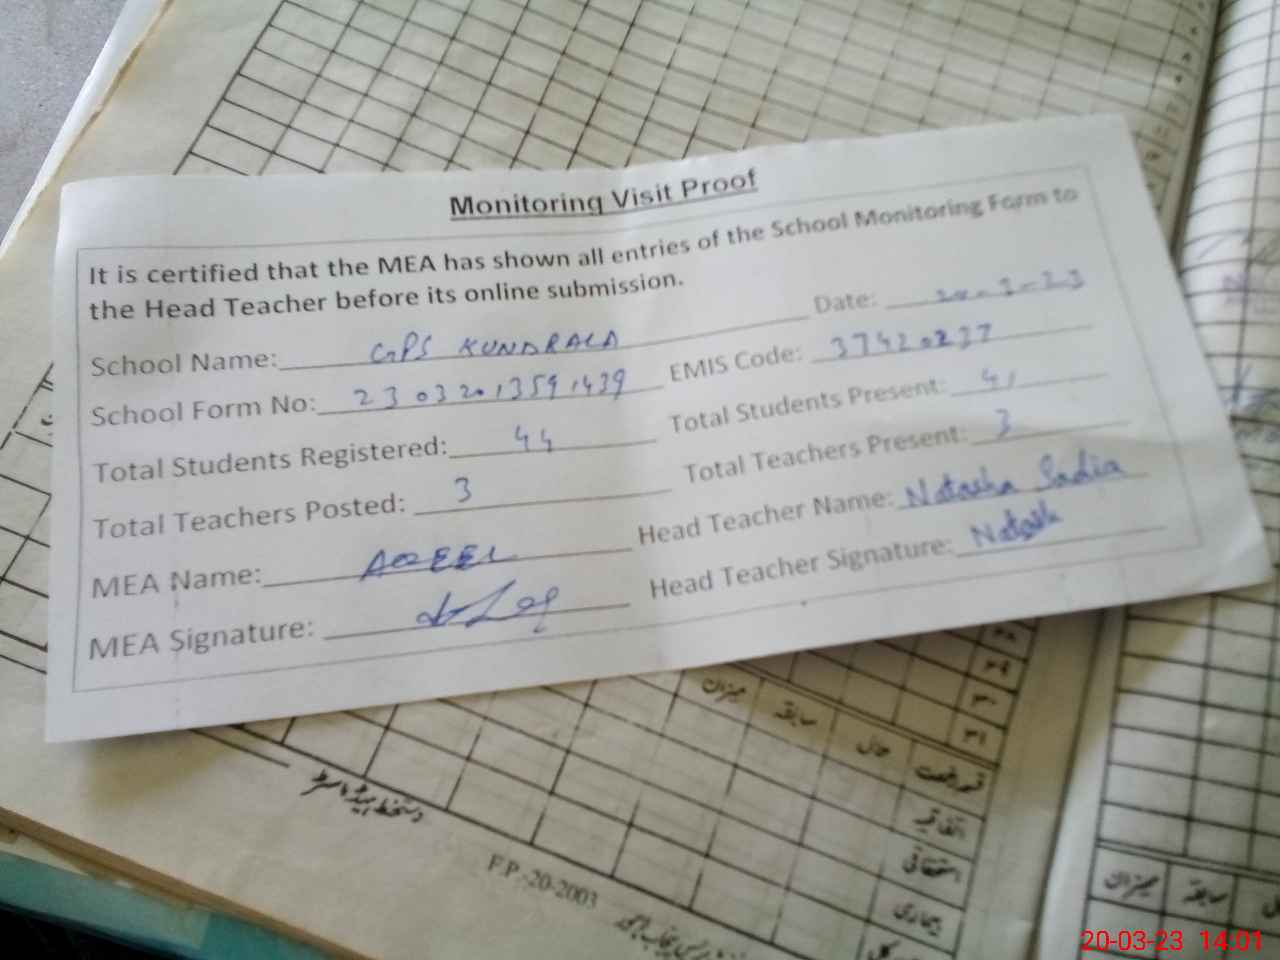 Monitoring Visit Proof
It is certified that the MEA has shown all entries of the School Monitoring Form to
the Head Teacher before its online submission.
School Name: GPS KUNDRALA Date: 20-3-23
School Form No: 23032013591439 EMIS Code: 37420237
Total Students Registered: 44 Total Students Present: 41
Total Teachers Posted: 3 Total Teachers Present: 3
MEA Name: AQEEL Head Teacher Name: Natasha Sadia
MEA Signature: Head Teacher Signature: Natash
۲۹
۳۰
۳۱
میزان سابقہ حال قسم رخصت
اتفاقیہ
استحقاقی
بیماری
کل
دستخط ہیڈ ماسٹر
P.P.-20-2003
میزان سابقہ
20-03-23 14:01